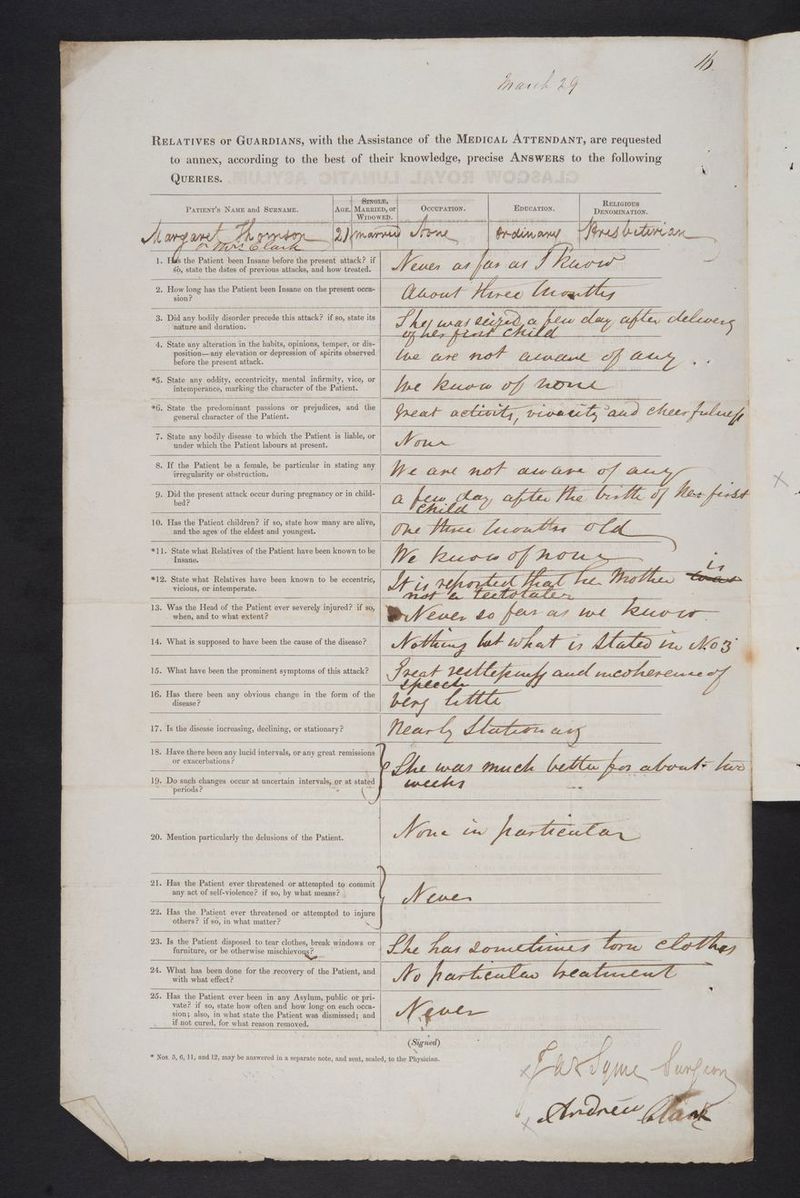 16
March 29
RELATIVES or GUARDIANS, with the Assistance of the MEDICAL ATTENDANT, are requested
to annex, according to the best of their knowledge, precise ANSWERS to the following
QUERIES.
PATIENT'S NAME and SURNAME. AGE. SINGLE, MARRIED, or WIDOWED. OCCUPATION. EDUCATION. RELIGIOUS DENOMINATION.
Margaret Thomson 21 married None ordinary Presbiterian
or Mrs Clark
1. Has the Patient been Insane before the present attack? if
so, state the dates of previous attacks, and how treated.
Never as far as I know
2. How long has the Patient been Insane on the present occa-
sion?
About three months
3. Did any bodily disorder precede this attack? if so, state its
nature and duration.
She was seized a few day after delivery
of her first child
4. State any alteration in the habits, opinions, temper, or dis-
position—any elevation or depression of spirits observed
before the present attack.
We are not aware of any
*5. State any oddity, eccentricity, mental infirmity, vice, or
intemperance, marking the character of the Patient.
We know of none
*6. State the predominant passions or prejudices, and the
general character of the Patient.
Great activity, vivacity and cheerfulness
7. State any bodily disease to which the Patient is liable, or
under which the Patient labours at present.
None
8. If the Patient be a female, be particular in stating any
irregularity or obstruction.
We are not aware of any
9. Did the present attack occur during pregnancy or in child-
bed?
a few day after the birth of her first
child
10. Has the Patient children? if so, state how many are alive,
and the ages of the eldest and youngest.
One three months old
*11. State what Relatives of the Patient have been known to be
Insane.
We know of none
*12. State what Relatives have been known to be eccentric,
vicious, or intemperate.
It is reported that her Mother was is
not a teetotaler
13. Was the Head of the Patient ever severely injured? if so,
when, and to what extent?
Never so far as we know
14. What is supposed to have been the cause of the disease?
Nothing but what is stated in No 3
15. What have been the prominent symptoms of this attack?
Great restlessness and incoherence of
speech
16. Has there been any obvious change in the form of the
disease?
Very little
17. Is the disease increasing, declining, or stationary?
Nearly Stationary
18. Have there been any lucid intervals, or any great remissions
or exacerbations?
19. Do such changes occur at uncertain intervals, or at stated
periods?
She was much better for about two
weeks
20. Mention particularly the delusions of the Patient.
None in particular
21. Has the Patient ever threatened or attempted to commit
any act of self-violence? if so, by what means?
22. Has the Patient ever threatened or attempted to injure
others? if so, in what matter?
Never
23. Is the Patient disposed to tear clothes, break windows or
furniture, or be otherwise mischievous?
She has sometimes torn clothes
24. What has been done for the recovery of the Patient, and
with what effect?
No particular treatment
25. Has the Patient ever been in any Asylum, public or pri-
vate? if so, state how often and how long on each occa-
sion; also, in what state the Patient was dismissed; and
if not cured, for what reason removed.
Never
(Signed)
* Nos. 5, 6, 11, and 12, may be answered in a separate note, and sent, sealed, to the Physician.
x Jas Syme Surgeon
x Andrew Clark